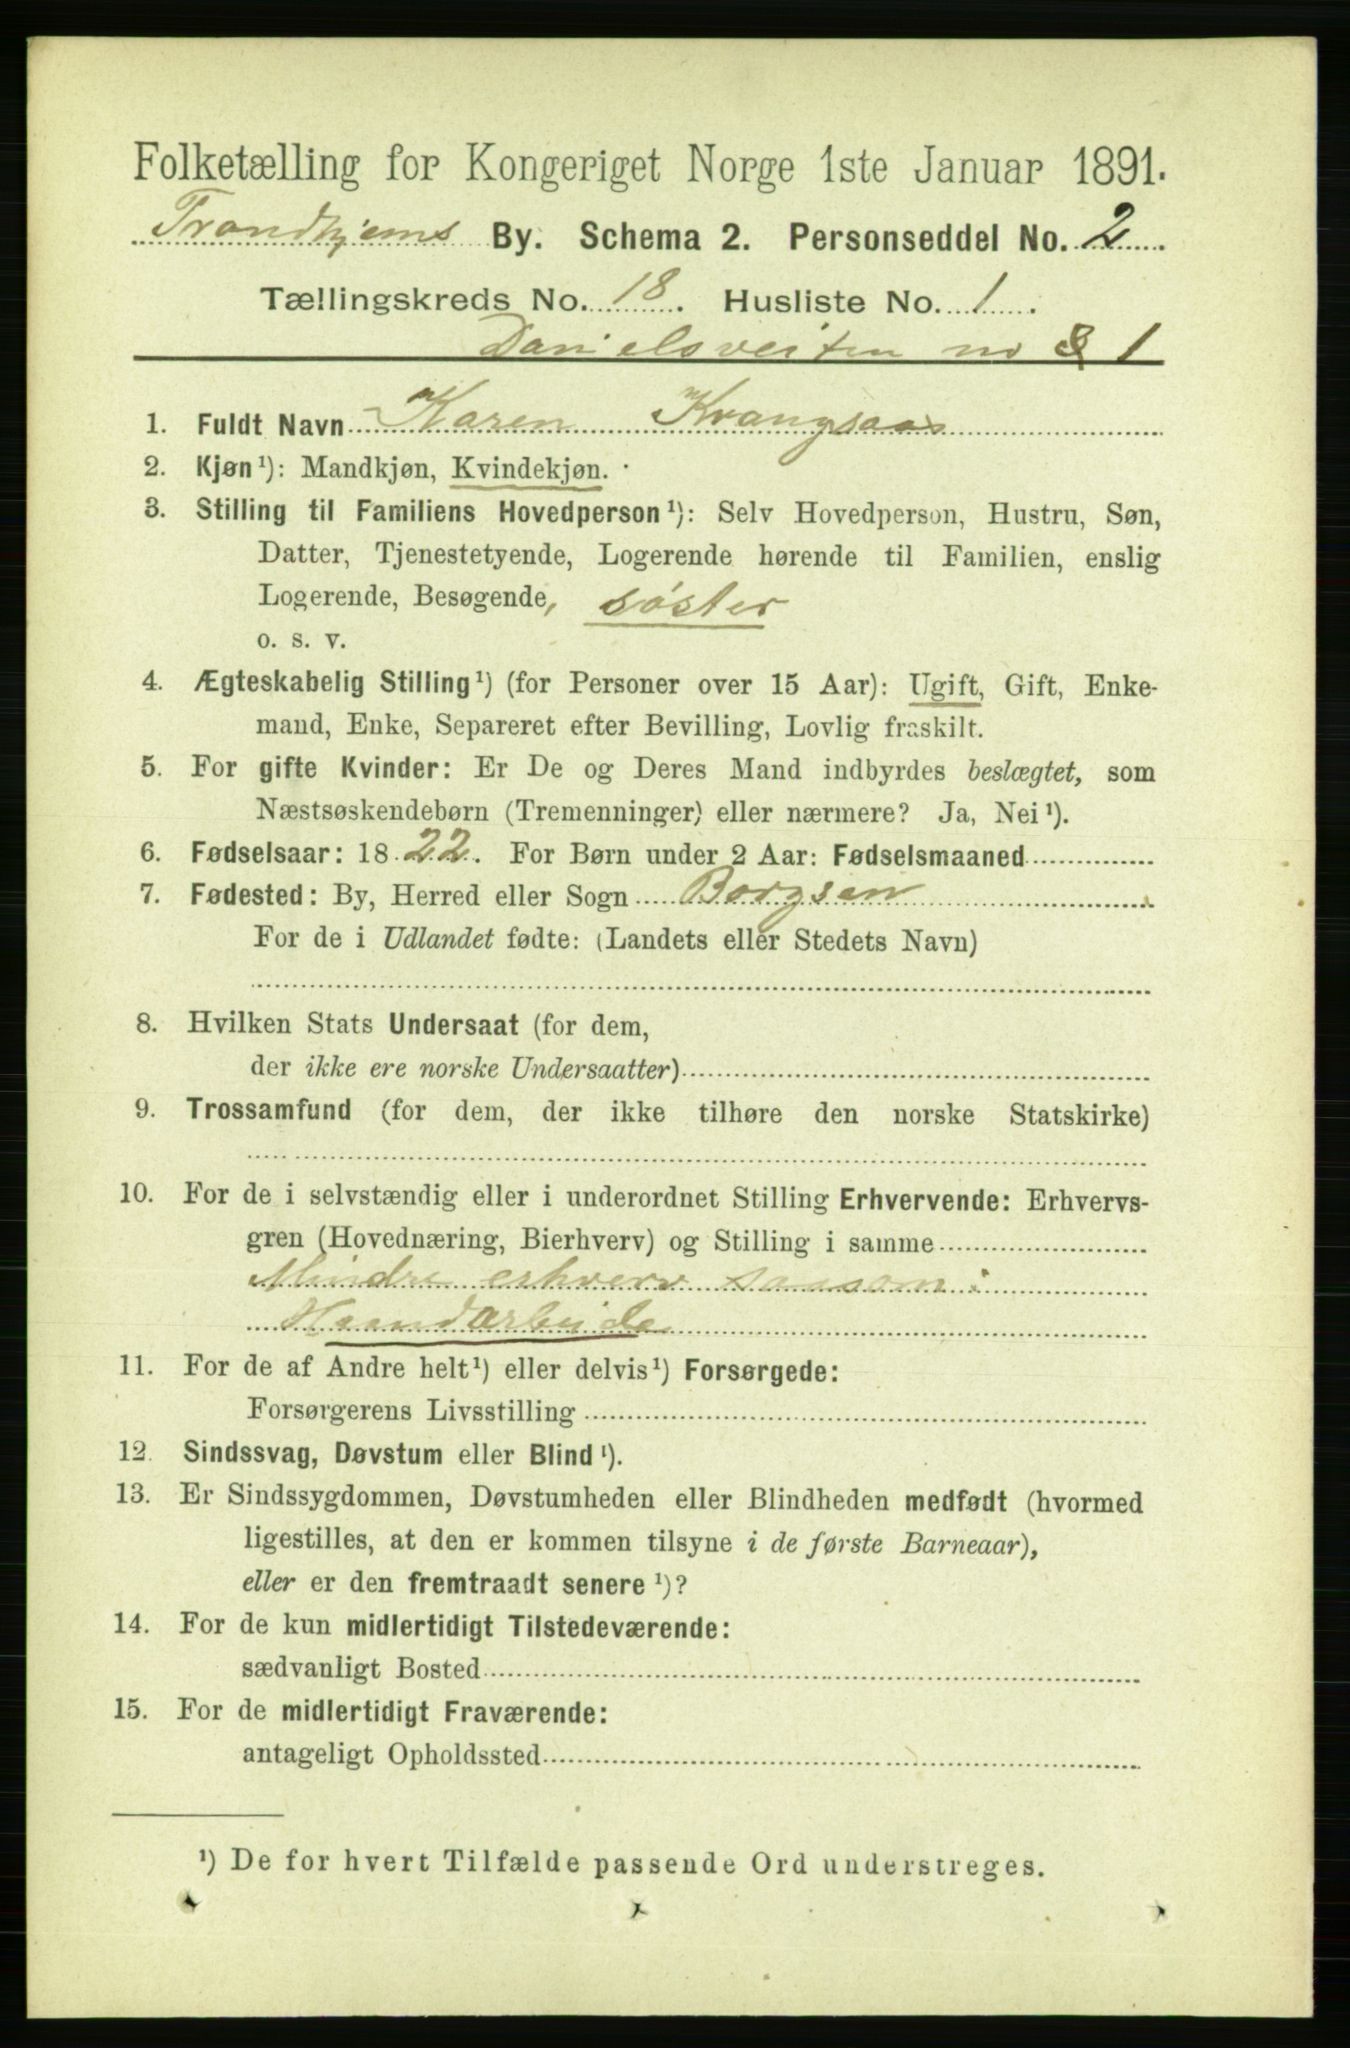 Folketælling for Kongeriget Norge 1ste Januar 1891.
Trondhjems By. Schema 2. Personseddel No. 2
Tællingskreds No. 18. Husliste No. 1.
Danielsveiten no 1
1. Fuldt Navn Karen Krangsaas
2. Kjøn¹): Mandkjøn, Kvindekjøn.
3. Stilling til Familiens Hovedperson¹): Selv Hovedperson, Hustru, Søn,
Datter, Tjenestetyende, Logerende hørende til Familien, enslig
Logerende, Besøgende, søster
o. s. v.
4. Ægteskabelig Stilling¹) (for Personer over 15 Aar): Ugift, Gift, Enke-
mand, Enke, Separeret efter Bevilling, Lovlig fraskilt.
5. For gifte Kvinder: Er De og Deres Mand indbyrdes beslægtet, som
Næstsøskendebørn (Tremenninger) eller nærmere? Ja, Nei¹).
6. Fødselsaar: 1822. For Børn under 2 Aar: Fødselsmaaned
7. Fødested: By, Herred eller Sogn Borgsen
For de i Udlandet fødte: (Landets eller Stedets Navn)
8. Hvilken Stats Undersaat (for dem,
der ikke ere norske Undersaatter)
9. Trossamfund (for dem, der ikke tilhøre den norske Statskirke)
10. For de i selvstændig eller i underordnet Stilling Erhvervende: Erhvervs-
gren (Hovednæring, Bierhverv) og Stilling i samme
Mindre erhverv saasom:
Haandarbeide
11. For de af Andre helt¹) eller delvis¹) Forsørgede:
Forsørgerens Livsstilling
12. Sindssvag, Døvstum eller Blind¹).
13. Er Sindssygdommen, Døvstumheden eller Blindheden medfødt (hvormed
ligestilles, at den er kommen tilsyne i de første Barneaar),
eller er den fremtraadt senere¹)?
14. For de kun midlertidigt Tilstedeværende:
sædvanligt Bosted
15. For de midlertidigt Fraværende:
antageligt Opholdssted
¹) De for hvert Tilfælde passende Ord understreges.